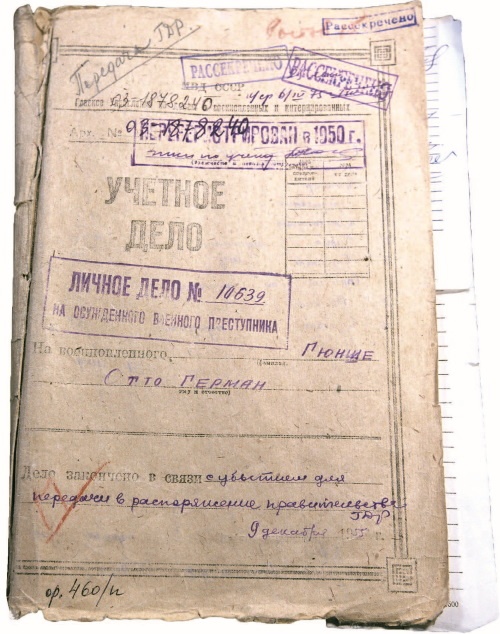 Рассекречено
Передача ГДР.
РАССЕКРЕЧЕНО
РАССЕКРЕЧЕНО
МВД СССР
военнопленных и интернированных
03-1878240
Арх. № 03-1878240
ПЕРЕРЕГИСТРИРОВАН в 1950 г.
УЧЕТНОЕ
ДЕЛО
ЛИЧНОЕ ДЕЛО № 10639
НА ОСУЖДЕННОГО ВОЕННОГО ПРЕСТУПНИКА
На военнопленного, ГЮНШЕ
(фамилия)
ОТТО ГЕРМАН
(имя и отчество)
Дело закончено в связи с убытием для
передачи в распоряжение правительства
ГДР
9 декабря 1955 г.
ор. 460/и